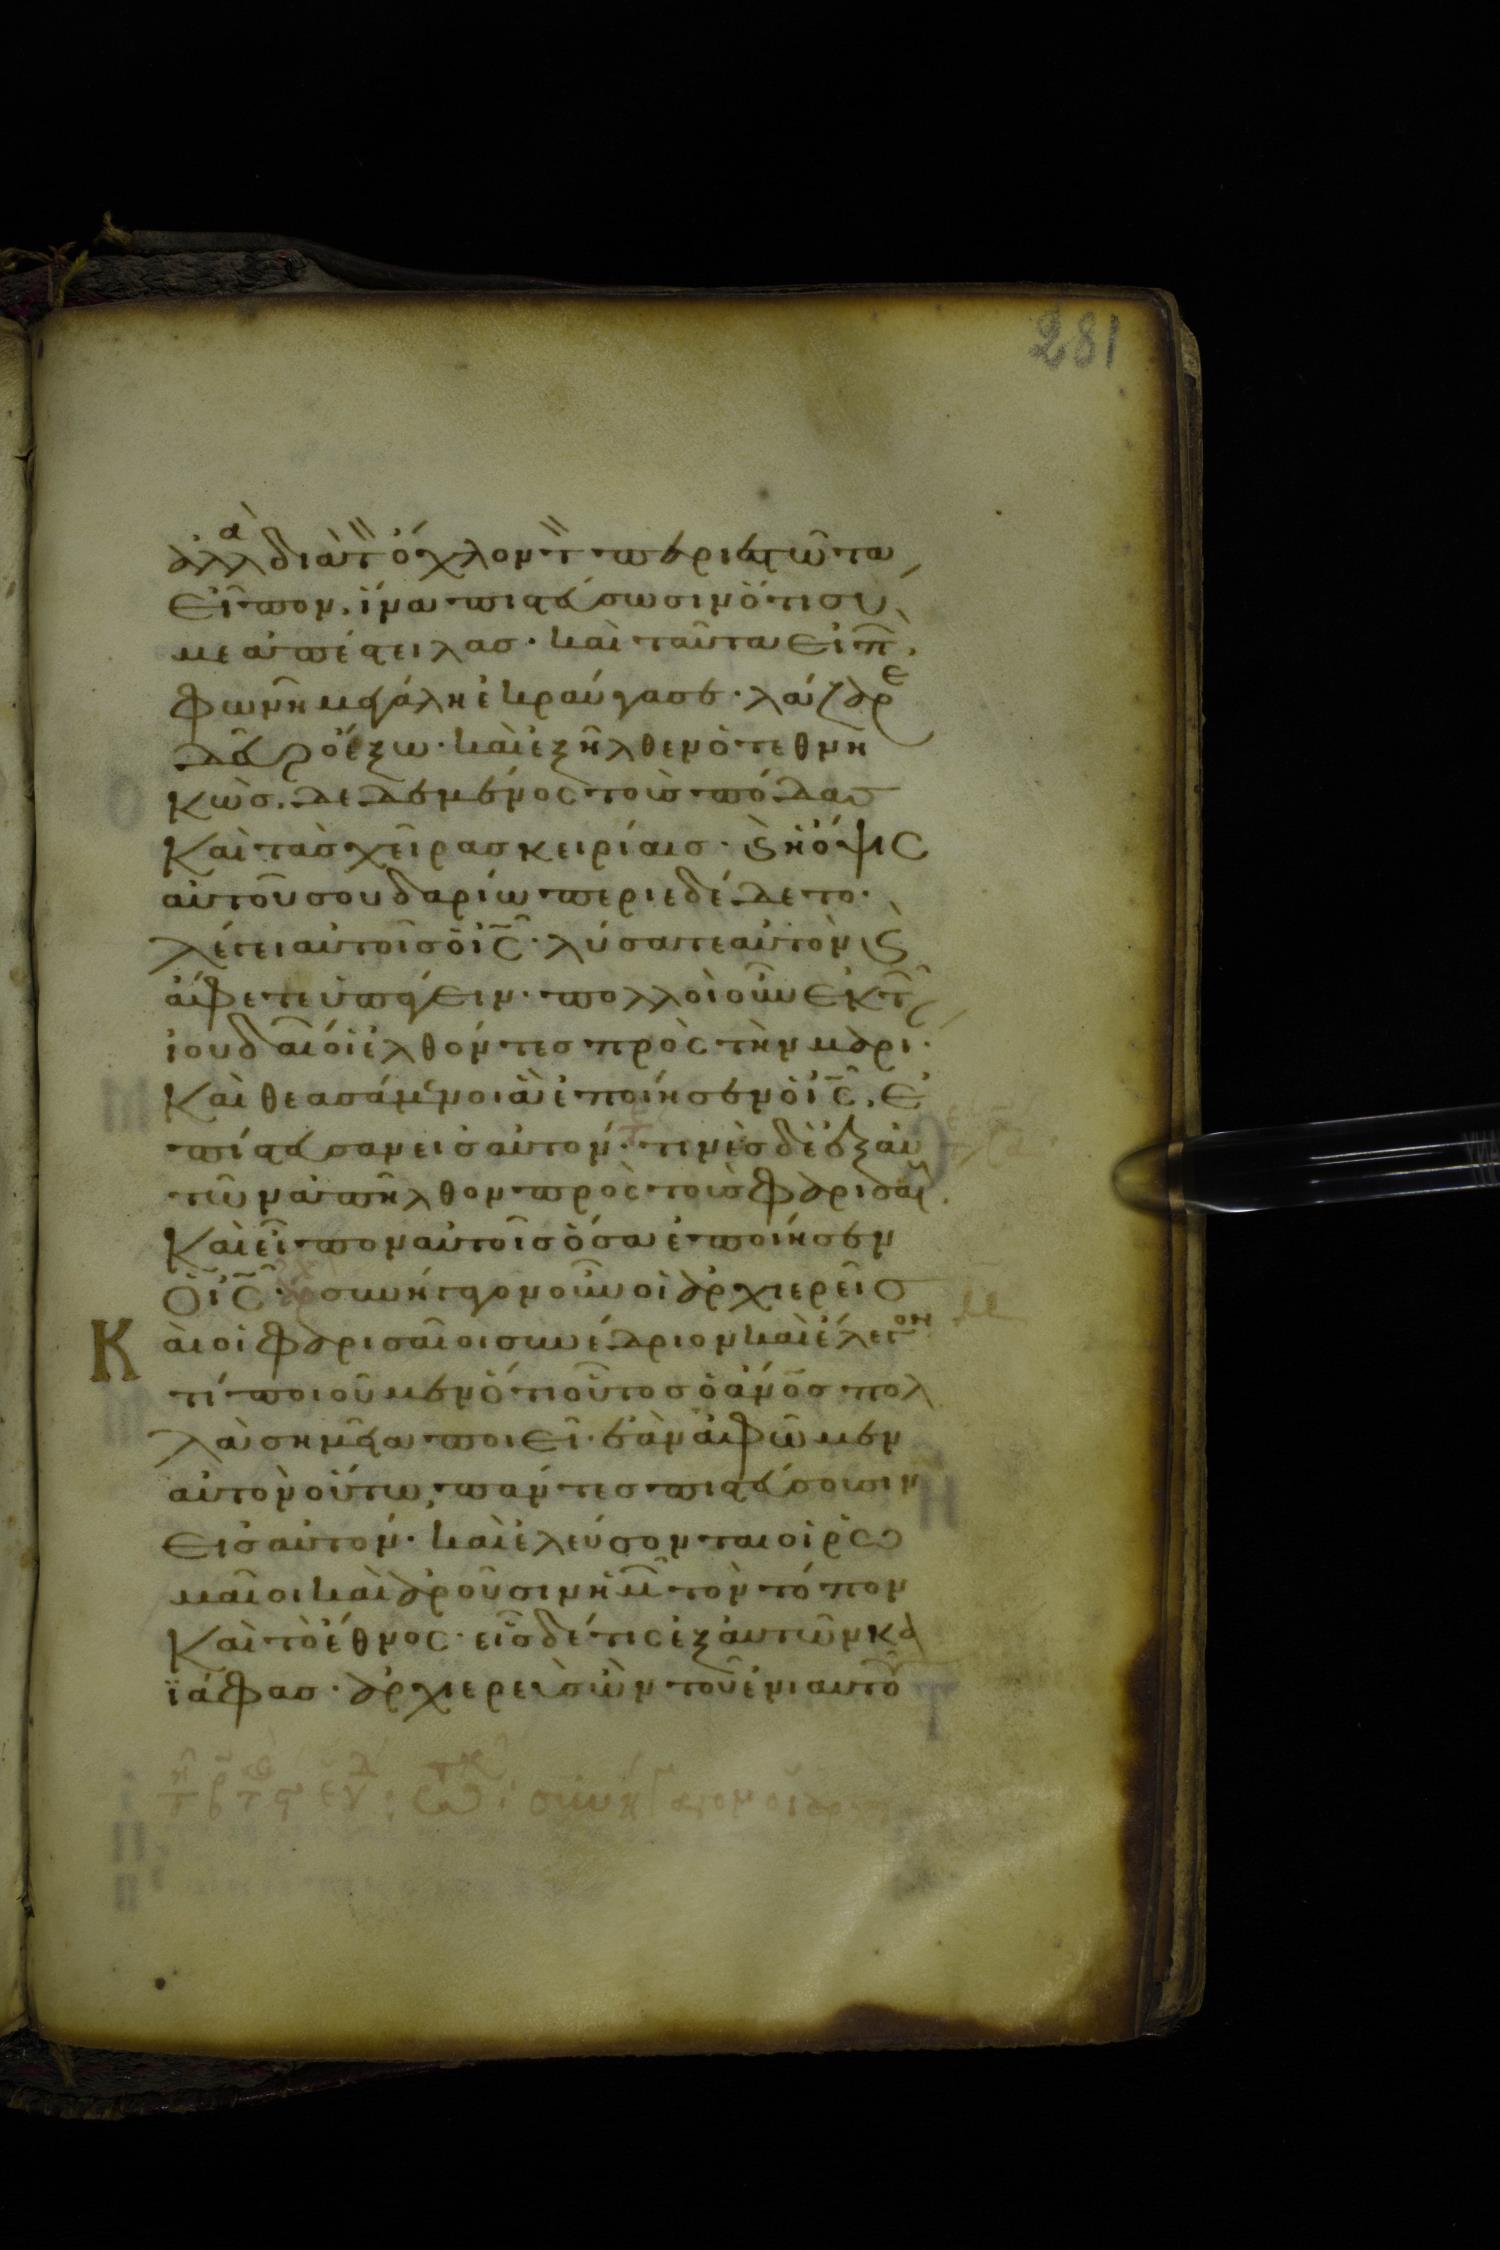 281
ἀλλὰ διὰ τ̏ ὄχλον τ̏ περιεστῶτα
εἶπον. ἵνα πιστεύσωσιν ὅτι σύ
με ἀπέστειλας· καὶ ταῦτα εἰπ̀.
φωνῆ μεγάλη ἐκραύγασε· λάζαρε
δεῦρο ἔξω· καὶ ἐξῆλθεν ὁ τεθνη
κὼς. δεδεμένος τοὺς πόδας
καὶ τὰς χεῖρας κειρίαις· ϗ ἡ ὄψις
αὐτοῦ σουδαρίω περιεδέδετο·
λέγει αὐτοῖς ὁ ι̅ς̅· λύσατε αὐτὸν ϗ
ἄφετε ὑπάγειν· πολλοὶ οὖν ἐκ τῶ
ἰουδαίοι ἐλθόντες πρὸς τὴν μαρι·
καὶ θεασάμενοι ἃ ἐποίησεν ὁ ι̅ς̅. ἐ
πίστευσαν εἰς αὐτον· τινὲς δὲ ἐξ αυ
τῶν ἀπῆλθον πρὸς τοὺς φαρισαί.
καὶ εἶπον αὐτοῖς ὅσα ἐποίησεν
ὁ ι̅ς̅· συνήγαγον οὖν οἱ ἀρχιερεῖς
Και οἱ φαρισαῖοι συνέδριον καὶ ἔλεγον
τί ποιοῦμεν ὅτι οὗτος ὁ α̅ν̅ο̅ς πολ
λὰ σημεῖα ποιεῖ· ἐὰν ἀφῶμεν
αὐτὸν οὕτω, πάντες πιστεύσουσιν
εἰς αὐτόν· καὶ ἐλεύσονται οἱ ῥω
μαῖοι καὶ ἀροῦσιν ἡμ̅ τὸν τόπον
καὶ τὸ ἔθνος· εἷς δέ τις ἐξ αὐτῶν κα
ϊάφας· ἀρχιερεὺς ὢν τοῦ ἐνιαυτοῦ